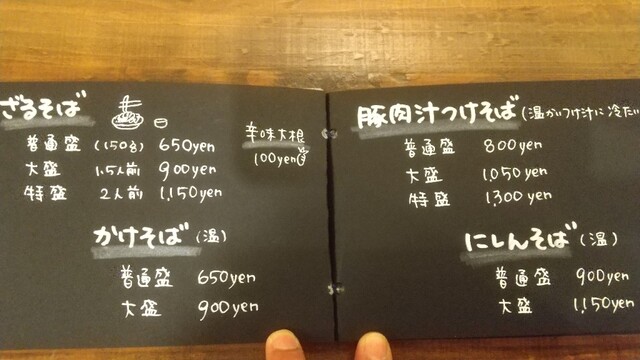 ざるそば
普通盛 (150g) 650yen
大盛 1.5人前 900yen
特盛 2人前 1,150yen
辛味大根
100yen
かけそば (温)
普通盛 650yen
大盛 900yen
豚肉汁つけそば (温かいつけ汁に冷たい
普通盛 800yen
大盛 1,050yen
特盛 1,300yen
にしんそば (温)
普通盛 900yen
大盛 1,150yen